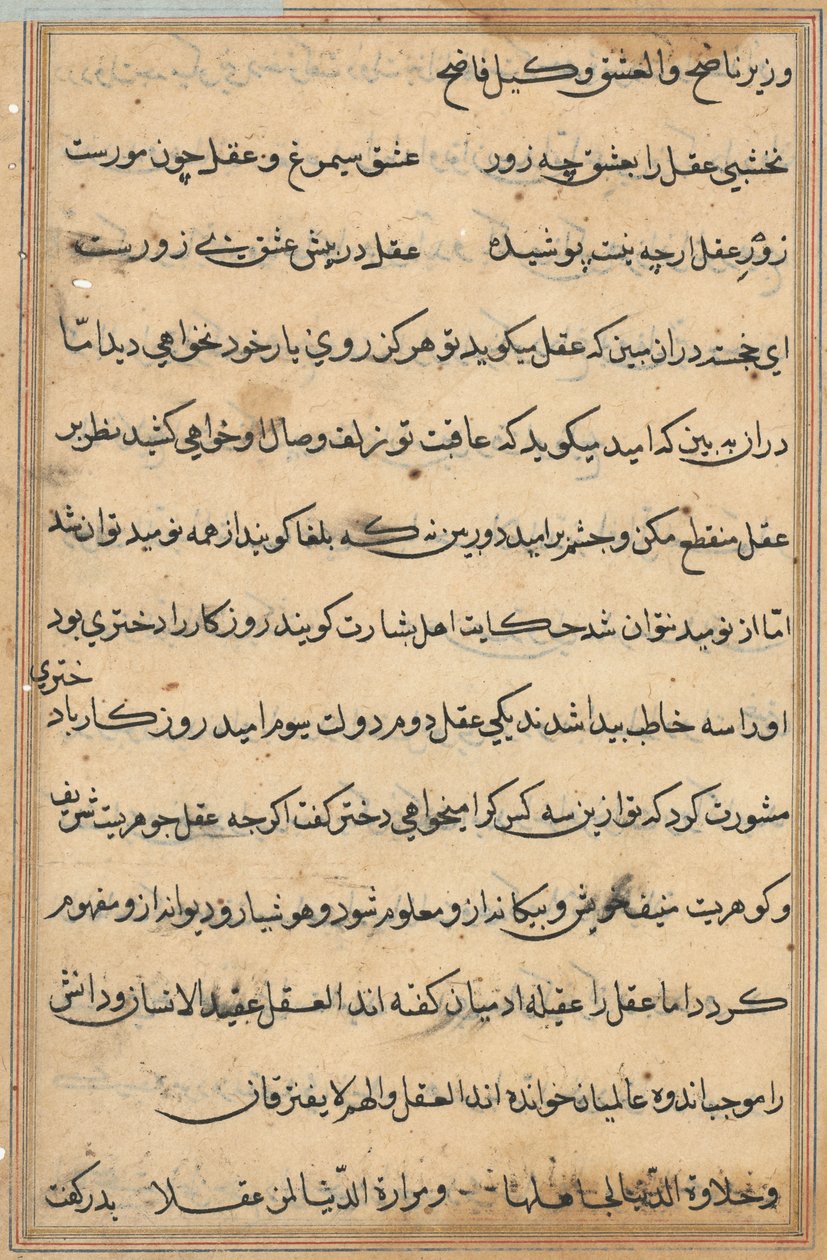 وزیر ناضح والعشق وکیل فاضح
نخشبي عقل را بعشق چه زور عشق سیمرغ و عقل چون مورست
زور عقل ارچه نیست پوشیده عقل در پیش عشق بے زورست
اي خجسته دران مبین که عقل میکوید تو هرکز روي یار خود نخواهي دید امّا
دران به بین که امید میکوید که عاقبت تو زلف وصال او خواهي کشید نظر بر
عقل منقطع مکن و جشم بر امید دوربین نه که بلغا کویند از همه نومید توان شد
امّا از نومید نتوان شد حکایت اهل بشارت کویند روزکار را دختري بود
ختري
او را سه خاطب بیدا شدند یکي عقل دوم دولت سوم امید روزکار باد
مشورت کرد که تو ازین سه کس کرا میخواهي دختر کفت اکرجه عقل جوهریت شریف
و کوهریت منیف خویش و بیکانه ازو معلوم شود و هوشیار و دیوانه ازو مفهوم
کردد اما عقل را عقیله ادمیان کفته اند العقل عقید الانسان و دانش
را موجب اندوه عالمیان خوانده اند العقل والهم لا یفترقان
وحلاوة الدّنیا لجاهلها ومرارة الدّنیا لمن عقلا بدر کفت